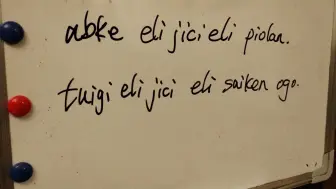 abke eli jici eli piolan.
tuigi eli jici eli saiken ogo.